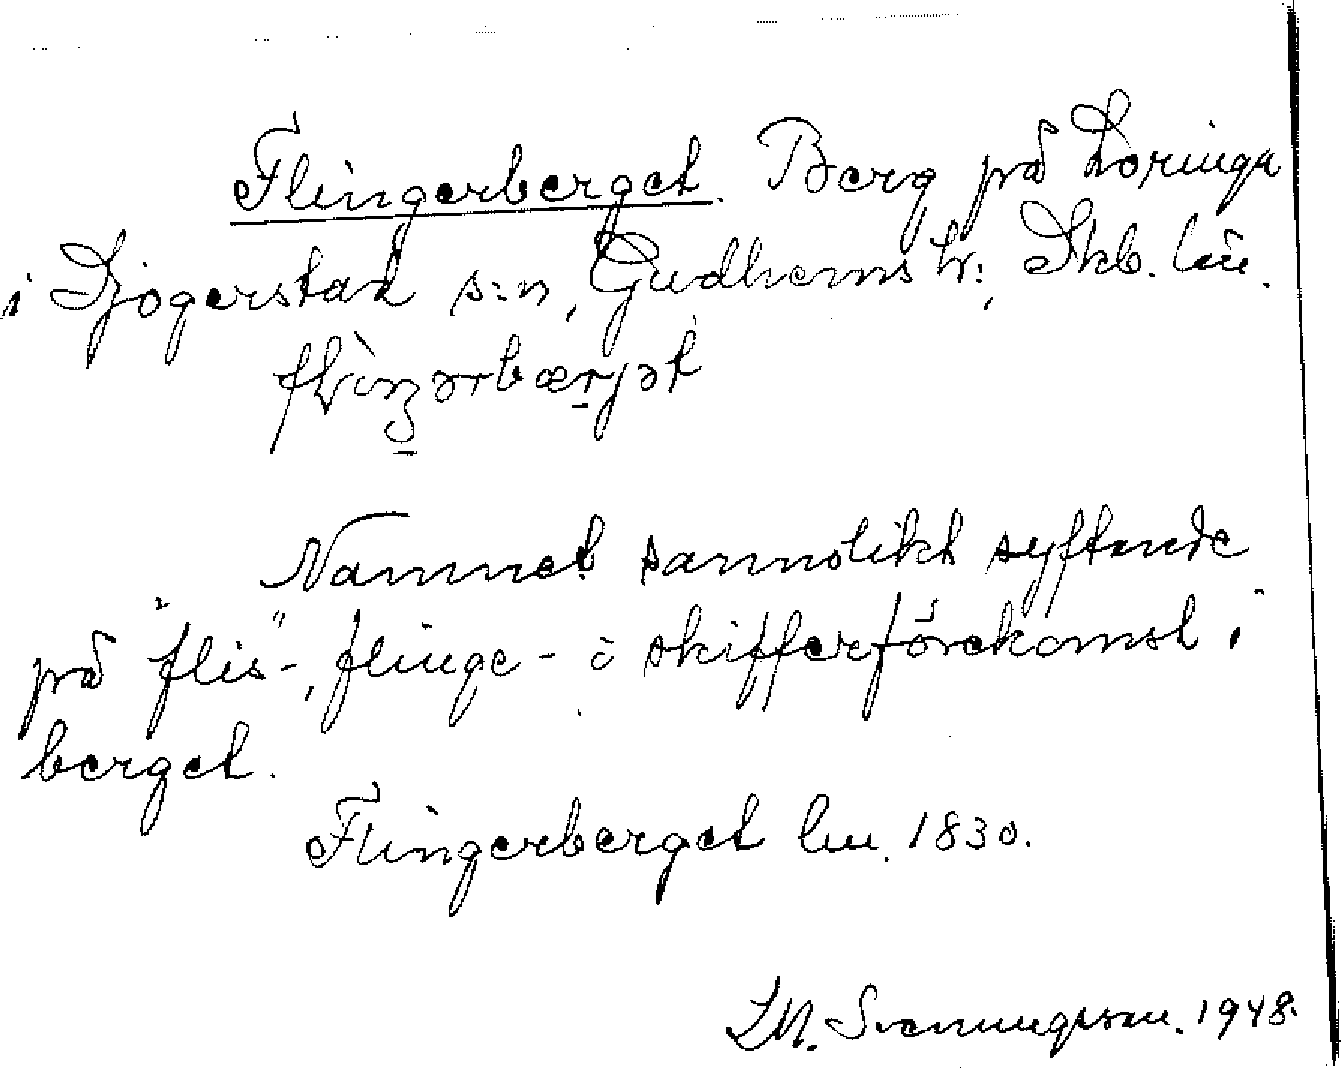 Flingerberget. Berg på Loringa
i Djogerstad s:n, Gudhems hr:, Skb. län.
Namnet sannolikt syftande
på "flis"-, flinge- o skifferförekomst i
berget.
Flingerberget lm. 1830.
LM. Svenungsson. 1948.